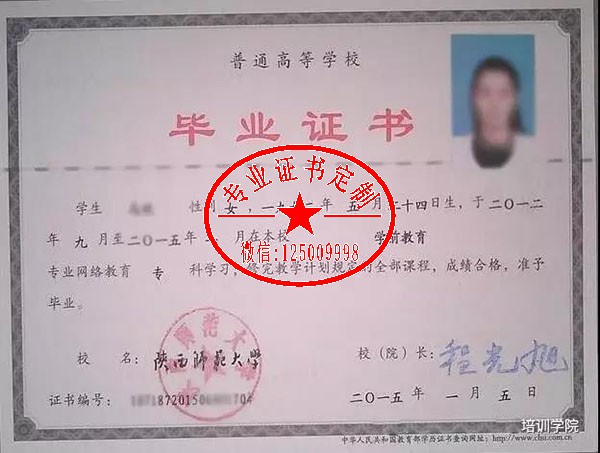 普通高等学校
毕业证书
专业证书定制
微信:125009998
学生 性别 女，一九 二年 五月二十四日生，于二〇一二
年九月至二〇一五年 月在本校 学前教育
专业网络教育 专 科学习，修完教学计划规定的全部课程，成绩合格，准予
毕业。
师范大
校 名：陕西师范大学
校（院）长：程光旭
证书编号： 720150 704
二〇一五年 一月 五日
培训学院
中华人民共和国教育部学历证书查询网址：http://www.chsi.com.cn